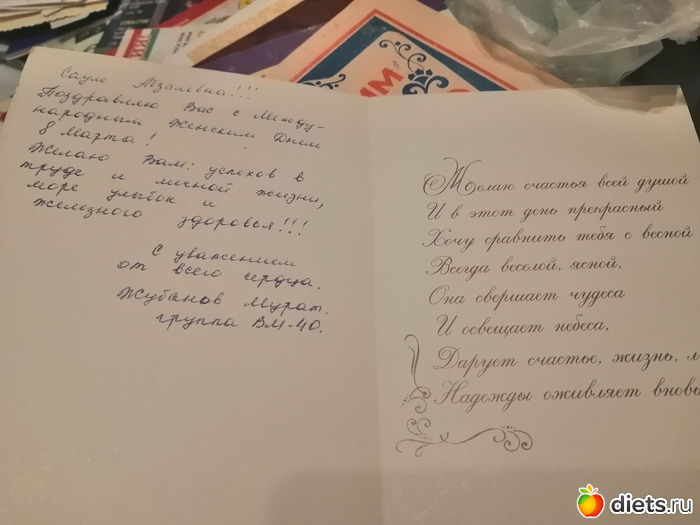 Сауле Азалевна!!!
Поздравляю Вас с Между-
народным Женским Днем
8 Марта!
Желаю Вам: успехов в
труде и личной жизни,
море улыбок и
железного здоровья!!!
С уважением
от всего сердца.
Жубанов Мурат.
группа ВМ-40.
Желаю счастья всей душой
И в этот день прекрасный
Хочу сравнить тебя с весной
Всегда веселой, ясной,
Она свершает чудеса
И освещает небеса,
Дарует счастье, жизнь,
Надежды оживляет вновь
diets.ru